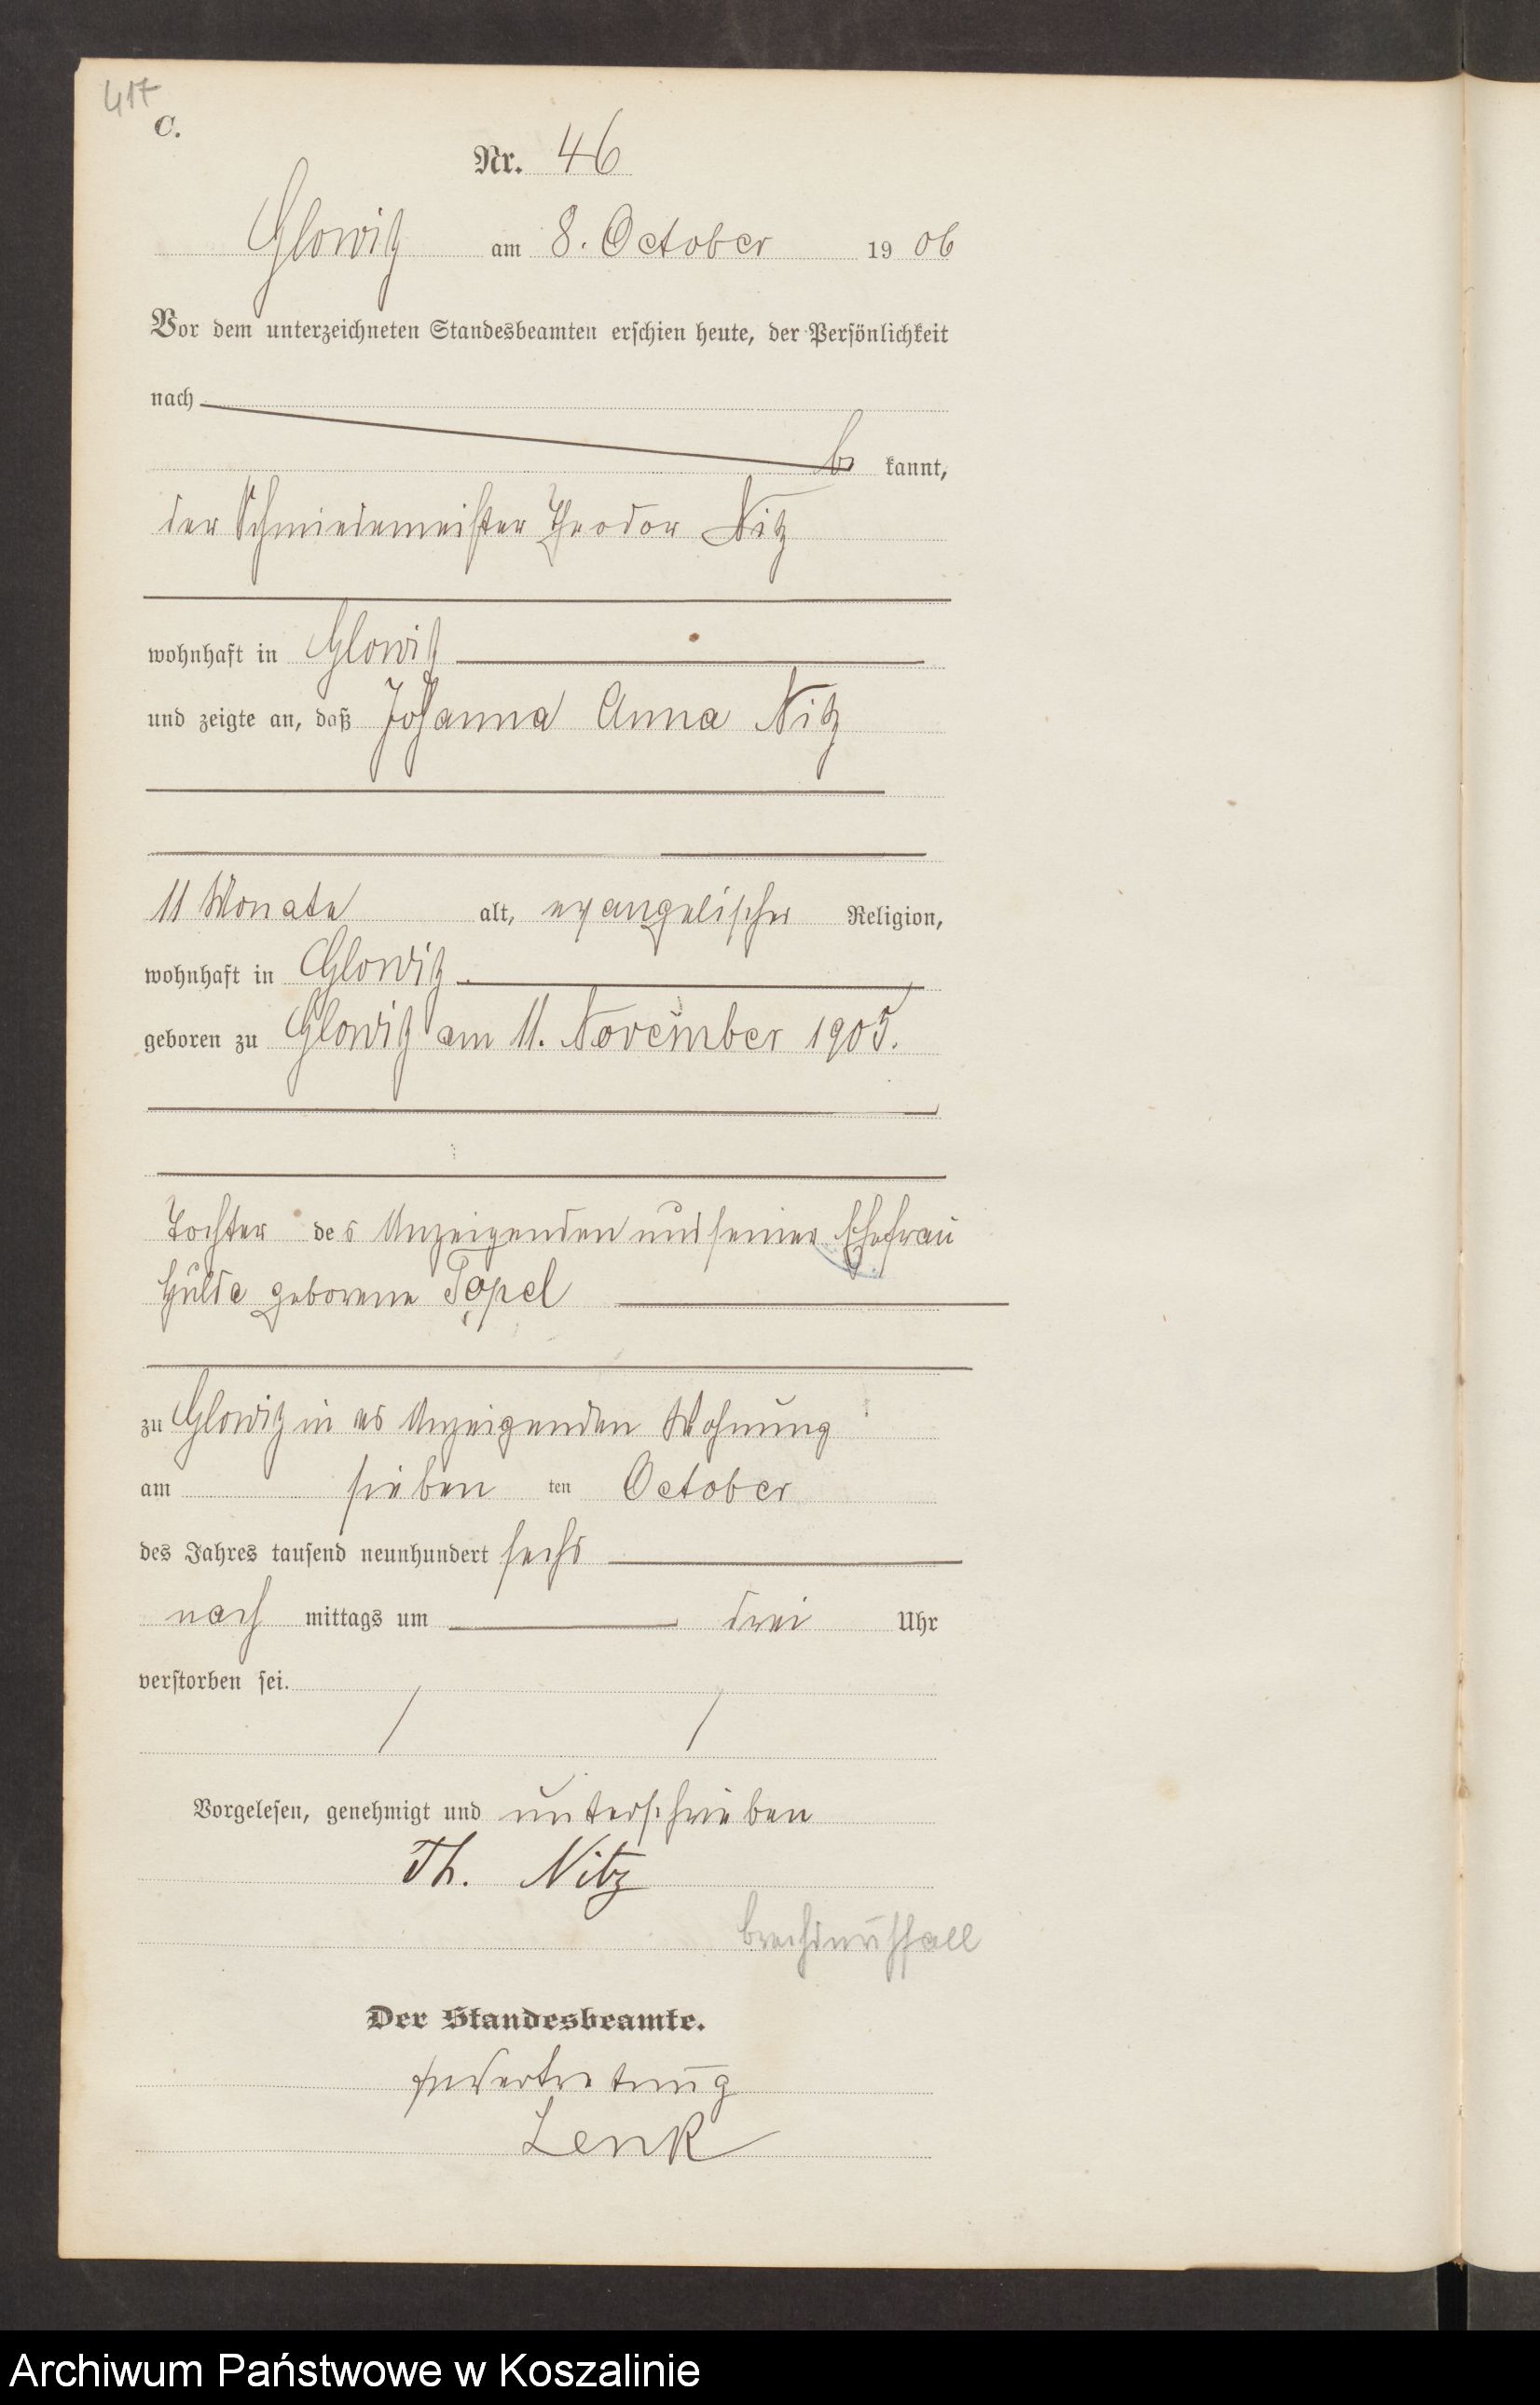 417
C.
Nr. 46
Glowitz am 8. October 1906
Vor dem unterzeichneten Standesbeamten erschien heute, der Persönlichkeit
nach
be kannt,
der Schmiedemeister Theodor Nitz
wohnhaft in Glowitz
und zeigte an, daß Johanna Anna Nitz
11 Monate alt, evangelischer Religion,
wohnhaft in Glowitz
geboren zu Glowitz am 11. November 1905.
Tochter des Anzeigenden und seiner Ehefrau
geborene
zu Glowitz in des Anzeigenden Wohnung
am sieben ten October
des Jahres tausend neunhundert sechs
nach mittags um drei Uhr
verstorben sei.
Vorgelesen, genehmigt und unterschrieben
Th. Nitz
Brechdurchfall
Der Standesbeamte.
In Vertretung
Lenk
Archiwum Państwowe w Koszalinie